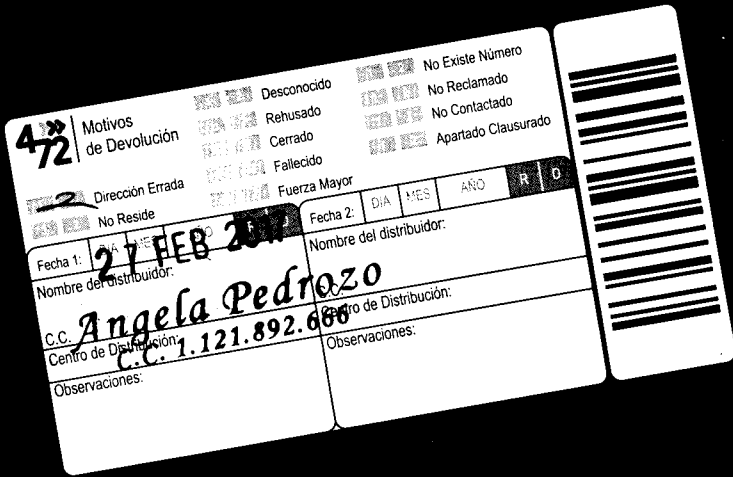 472
Motivos
de Devolución
Desconocido
Rehusado
Cerrado
Fallecido
Fuerza Mayor
No Existe Número
No Reclamado
No Contactado
Apartado Clausurado
Dirección Errada
No Reside
Fecha 1: DIA MES AÑO R D
27 FEB 2017
Nombre del distribuidor:
Angela Pedrozo
C.C.
C.C. 1.121.892.666
Centro de Distribución:
Observaciones:
Fecha 2: DIA MES AÑO R D
Nombre del distribuidor:
C.C.
Centro de Distribución:
Observaciones: